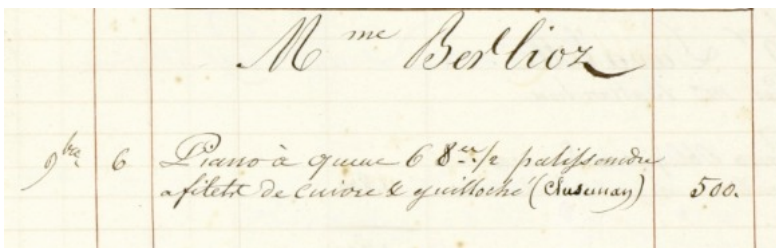 Mme Berlioz
9bre 6 Piano à queue 6 8ves 1/2 palissandre
a filets de cuivre & guilloché 500.